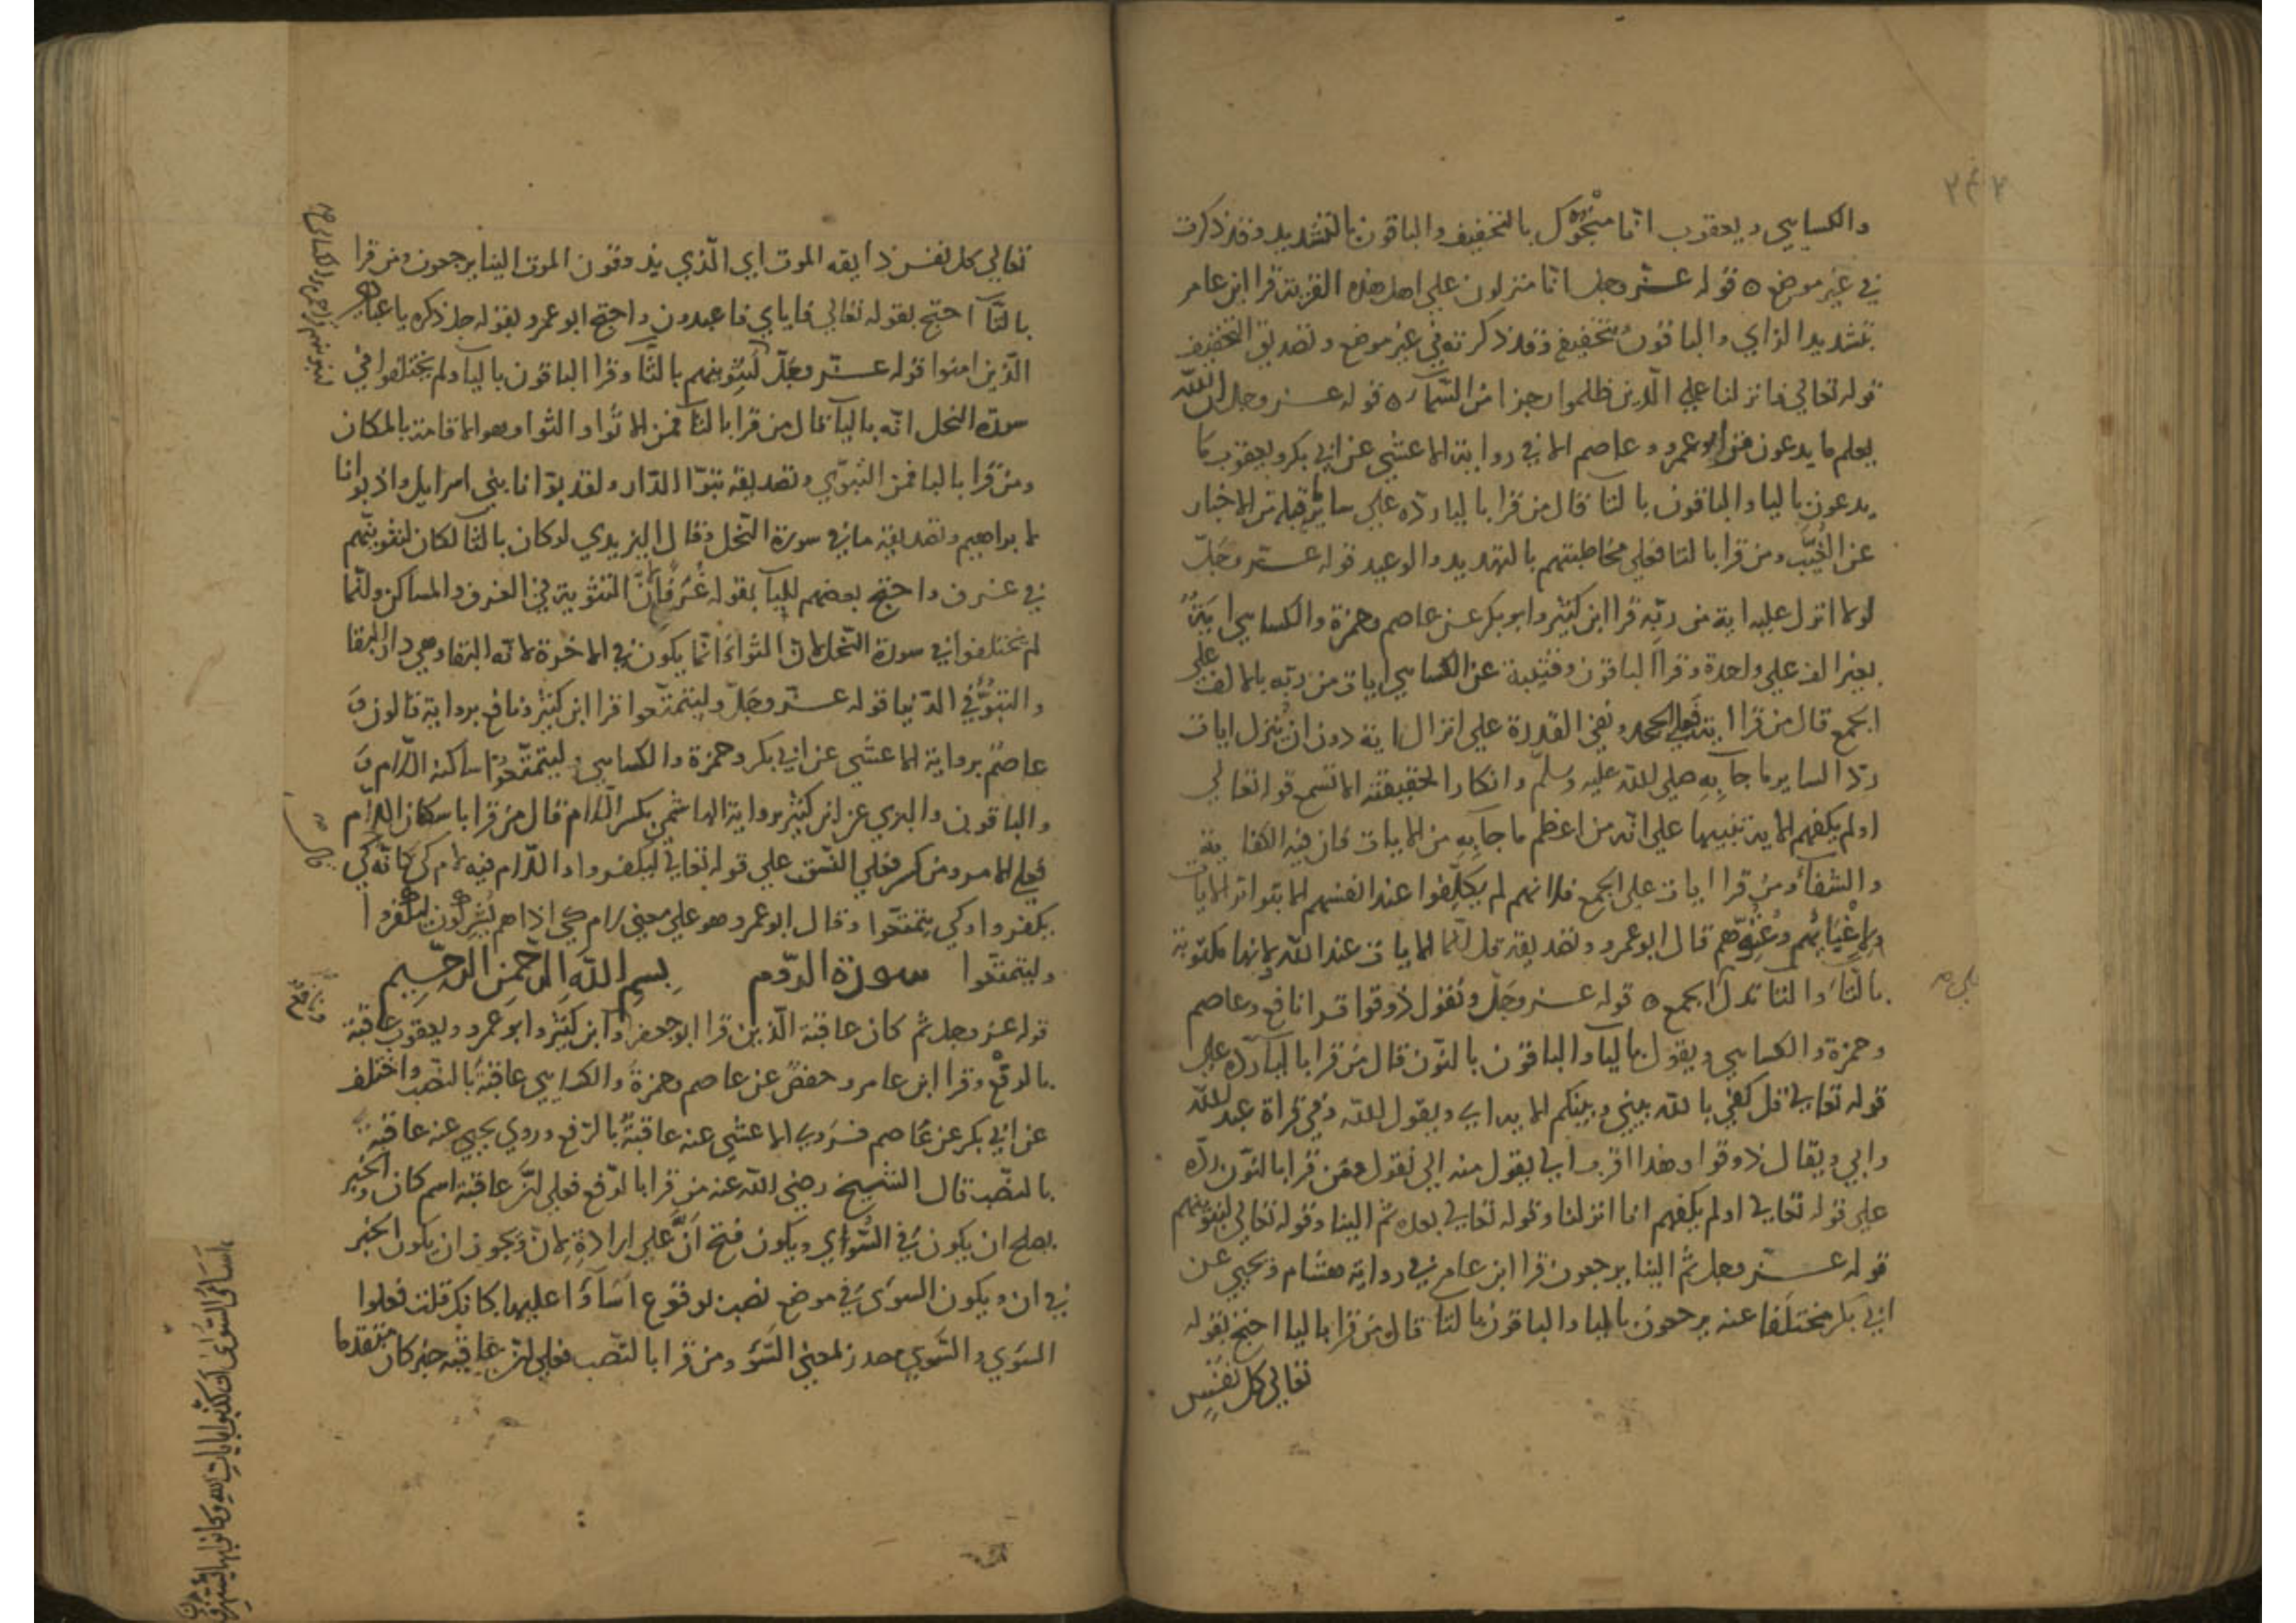 والكسايي ويعقوب انا منجوك بالتخفيف والباقون بالتشديد وقد ذكرت
في غير موضع ه قوله عز وجل انا منزلون على اهل هذه القرية قرا ابن عامر
بتشديد الزاي والباقون بتخفيفه وقد ذكرته في غير موضع وتصديق التخفيف
قوله تعالي فانزلنا علي الذين ظلموا رجزا من السماء ه قوله عز وجل ان الله
يعلم ما يدعون من ابو عمرو وعاصم الا في رواية الاعشي عن ابي بكر ويعقوب ما
يدعون باليا والباقون بالتا قال من قرا باليا رده علي ساير ما قبله من الاخبار
عن الغيب ومن قرا بالتا فعلي مخاطبتهم بالتهديد والوعيد قوله عز وجل
لولا انزل عليه اية من ربه قرا ابن كثير وابو بكر عن عاصم وحمزة والكسايي اية
بغير الف علي واحدة وقرا الباقون وقتيبة عن الكسايي ايات من ربه بالالف علي
الجمع قال من قرا اية فعلي الجحد ونفي القدرة علي انزال اية دون ان ينزل ايات
ردا لساير ما جآ به صلي الله عليه وسلم وانكارا لحقيقته الا تسمع قوله تعالي
اولم يكفهم الاية تنبيها علي انه من اعظم ما جا به من الايات فان فيه الكفاية
والشفاء ومن قرا ايات علي الجمع فلانهم لم يكلفوا عند انفسهم الا بتواتر الايات
ولاغيائهم وعتوهم قال ابو عمرو وتصديقه قل انما الايات عند الله ولانها مكتوبة
بالتاء والتا تدل علي الجمع ه قوله عز وجل ونقول ذوقوا قرا نافع وعاصم
وحمزة والكسايي ويقول باليا والباقون بالنون قال من قرا باليا رده علي
قوله تعالي قل كفي بالله بيني وبينكم الاية اي ويقول الله وفي قراة عبد الله
وابي ويقال ذوقوا وهذا اقرب الي يقول منه الي نقول ومن قرا بالنون رده
علي قوله تعالي اولم يكفهم انا انزلنا وقوله تعالي بعده ثم الينا وقوله تعالي لنبوئنهم
قوله عز وجل ثم الينا يرجعون قرا ابن عامر في رواية هشام ويحيي عن
ابي بكر مختلفا عنه يرجعون باليا والباقون بالتا قال من قرا باليا احتج بقوله
تعالي كل نفس
تعالي كل نفس ذايقه الموت اي الذي يذوقون الموت الينا يرجعون ومن قرا
بالتآ احتج بقوله تعالي فاياي فاعبدون واحتج ابو عمرو بقوله جل ذكره يا عبادي
الذين امنوا قوله عز وجل لنثوينهم بالثا وقرا الباقون باليا ولم يختلفوا في
سورة النحل انه باليآ قال من قرا بالثآ فمن الاثواء والثوا وهو الاقامة بالمكان
ومن قرا باليا فمن التبوي وتصديقه تبوا الدار ولقد بوانا بني اسرايل واذ بوانا
لابراهيم وتصديقه ما في سورة النحل وقال اليزيدي لو كان بالثا لكان لنثوينهم
في غرف واحتج بعضهم لليآ بقوله غرفا لان التثوية في الغرف والمساكن وانما
لم يختلفوا في سورة النحل لان الثواء انما يكون في الاخرة لانه البقا وهي دار البقا
والتبوء في الدنيا قوله عز وجل وليتمتعوا قرا ابن كثير ونافع برواية قالون و
عاصم برواية الاعشي عن ابي بكر وحمزة والكسايي وليتمتعوا ساكنة اللام و
والباقون والبزي عن ابن كثير برواية الهاشمي بكسر اللام قال من قرا باسكان اللام
فعلي الامر ومن كسر فعلي النسق علي قوله تعالي ليكفروا واللام فيه لام كي كانه كي
يكفروا وكي يتمتعوا وقال ابو عمرو هو علي معني لام كي اذا هم يشركون ليكفروا
وليتمتعوا سورة الروم بسم الله الرحمن الرحيم
قوله عز وجل ثم كان عاقبة الذين قرا ابو جعفر وابن كثير وابو عمرو ويعقوب عاقبة
ونافع
بالرفع وقرا ابن عامر وحفص عن عاصم وحمزة والكسايي عاقبة بالنصب واختلف
عن ابي بكر عن عاصم فروي الاعشي عنه عاقبة بالرفع وروي يحيي عنه عاقبة
بالنصب قال الشيخ رضي الله عنه من قرا بالرفع فعلي ان عاقبة اسم كان والخبر
يصلح ان يكون في السواي ويكون فتح ان علي ارادة لان ويجوز ان يكون الخبر
في ان ويكون السوي في موضع نصب لوقوع اساؤا عليها كانك قلت فعلوا
السوي والسوي مصدر لمعني السؤ ومن قرا بالنصب فعلي ان عاقبة خبر كان متقدما
اساءوا السوأى ان كذبوا بايات الله وكانوا بها يستهزؤن